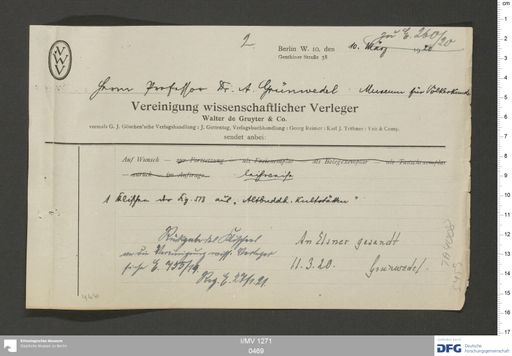 zu E. 260/20
2
VWV
Berlin W. 10, den 10. März 1920
Genthiner Straße 38
Herrn Professor Dr. A. Grünwedel Museum für Völkerkunde
Vereinigung wissenschaftlicher Verleger
Walter de Gruyter & Co.
vormals G. J. Göschen'sche Verlagshandlung : J. Guttentag, Verlagsbuchhandlung : Georg Reimer : Karl J. Trübner : Veit & Comp.
sendet anbei:
Auf Wunsch — zur Fortsetzung — als Freiexemplar als Belegexemplar als Tauschexemplar
zurück im Auftrage leihweise
1 Klischee der Fig. 513 aus „Altbuddh. Kultstätten"
Rückgabe des Klischees
an die Vereinigung wiss. Verleger
siehe E.
An Elsner gesandt
11.3.20. Grünwedel.
Ethnologisches Museum
Staatliche Museen zu Berlin
I/MV 1271
0469
DFG Deutsche Forschungsgemeinschaft